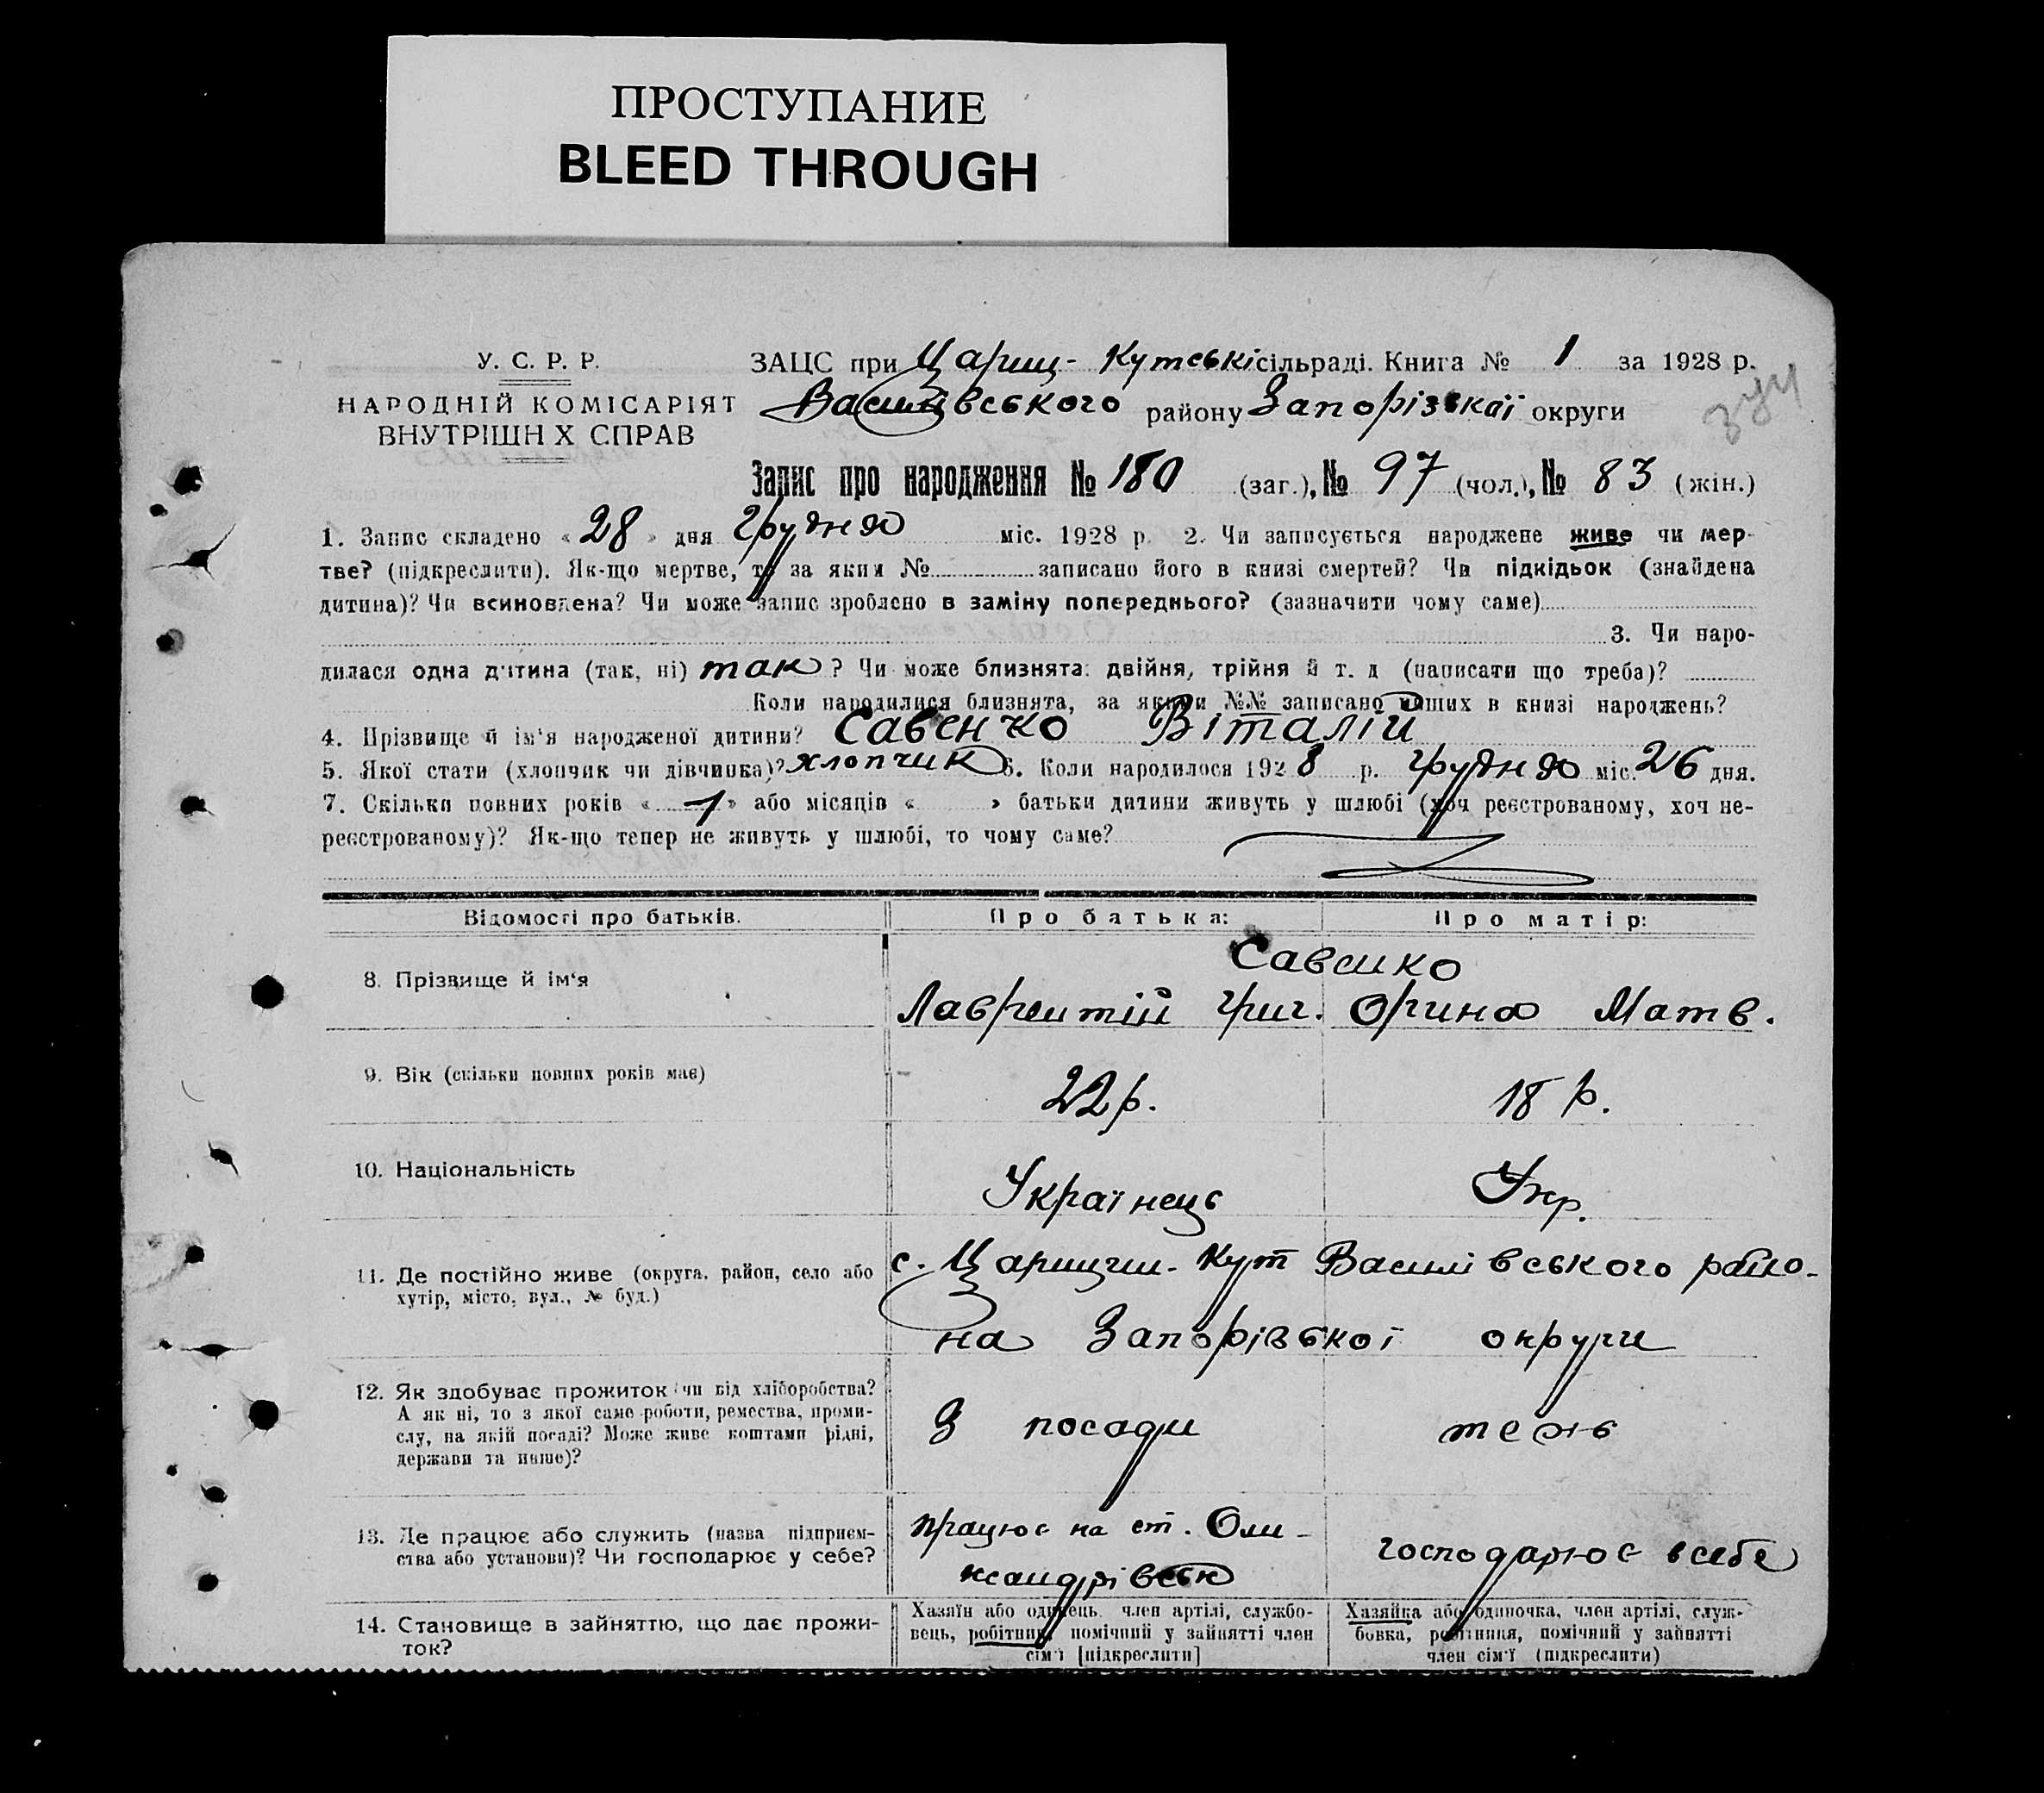 ПРОСТУПАНИЕ
BLEED THROUGH
У. С. Р. Р.
НАРОДНІЙ КОМІСАРІЯТ
ВНУТРІШН Х СПРАВ
ЗАЦС при Цариц- Кутській сільраді. Книга № 1 за 1928 р.
Василівського району Запорізької округи
Запис про народження № 180 (заг.), № 97 (чол.), № 83 (жін.)
1. Запис складено « 28 » дня грудня міс. 1928 р. 2. Чи записується народжене живе чи мер-
тве? (підкреслити). Як-що мертве, то за яким № записано його в книзі смертей? Чи підкідьок (знайдена
дитина)? Чи всиновлена? Чи може запис зроблено в заміну попереднього? (зазначити чому саме)
3. Чи наро-
дилася одна дитина (так, ні) так ? Чи може близнята: двійня, трійня й т. д (написати що треба)?
Коли народилися близнята, за якими №№ записано инших в книзі народжень?
4. Прізвище й ім'я народженої дитини? Савенко Віталій
5. Якої стати (хлопчик чи дівчинка)? хлопчик 6. Коли народилося 1928 р. грудня міс. 26 дня.
7. Скільки повних років « 1 » або місяців « » батьки дитини живуть у шлюбі (хоч реєстрованому, хоч не-
реєстрованому)? Як-що тепер не живуть у шлюбі, то чому саме?
Відомості про батьків. Про батька: Про матір:
Савенко
8. Прізвище й ім'я Лаврентій Григ. Орина Матв.
9. Вік (скільки повних років має) 22 р. 18 р.
10. Національність Українець Укр.
11. Де постійно живе (округа, район, село або с. Царицин-Кут Василівського райо-
хутір, місто, вул., № буд.)
на Запорізької округи
12. Як здобуває прожиток (чи від хліборобства?
А як ні, то з якої саме роботи, ремества, проми-
слу, на якій посаді? Може живе коштами рідні,
держави та инше)?
З посади теж
13. Де працює або служить (назва підприєм-
ства або установи)? Чи господарює у себе?
працює на ст. Оли-
ксандрівськ
господарює в себе
14. Становище в зайняттю, що дає прожи-
ток?
Хазяїн або одинець, член артілі, службо-
вець, робітник, помічний у зайнятті член
сім'ї [підкреслити]
Хазяйка або одиночка, член артілі, служ-
бовка, робітниця, помічний у зайнятті
член сім'ї (підкреслити)